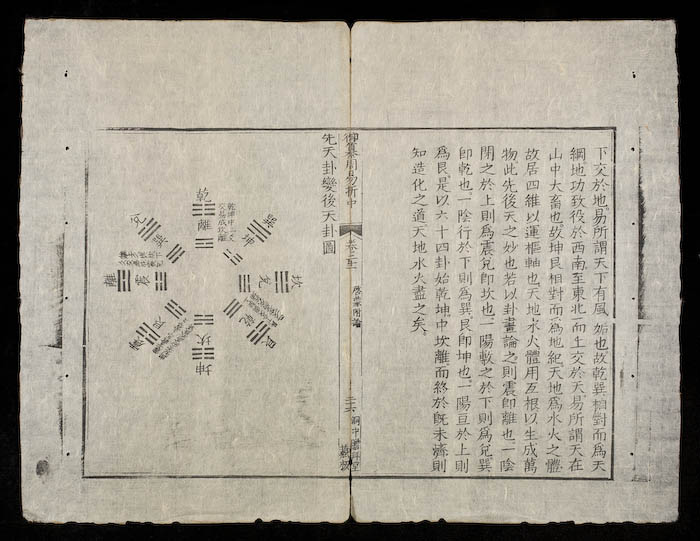 下交於地、易所謂天下有風、姤也、故乾巽相對而為天
綱、地功致役於西南、至東北一而上交於天、易所謂天在
山中大畜也、故坤艮相對而為地紀、天地為水火之體
故居四維以運樞軸也、天地水火體用互根以生成萬
物、此先後天之妙也、若以卦畫論之則震即離也、一陰
閉之於上則為震、兌即坎也、一陽敷之於下則為兌、巽
即乾也、一陰行於下則為巽、艮即坤也、一陽亘於上則
為艮、是以六十四卦始乾坤中坎離而終於既未濟、則
知造化之道、天地水火盡之矣、
御纂周易折中
啟蒙附論
二六
先天卦變後天卦圖
乾
離
乾坤中二爻
交易成坎離
巽
坤
坎
兌
艮
乾
坤
坎
震
艮
離
震
兌
巽